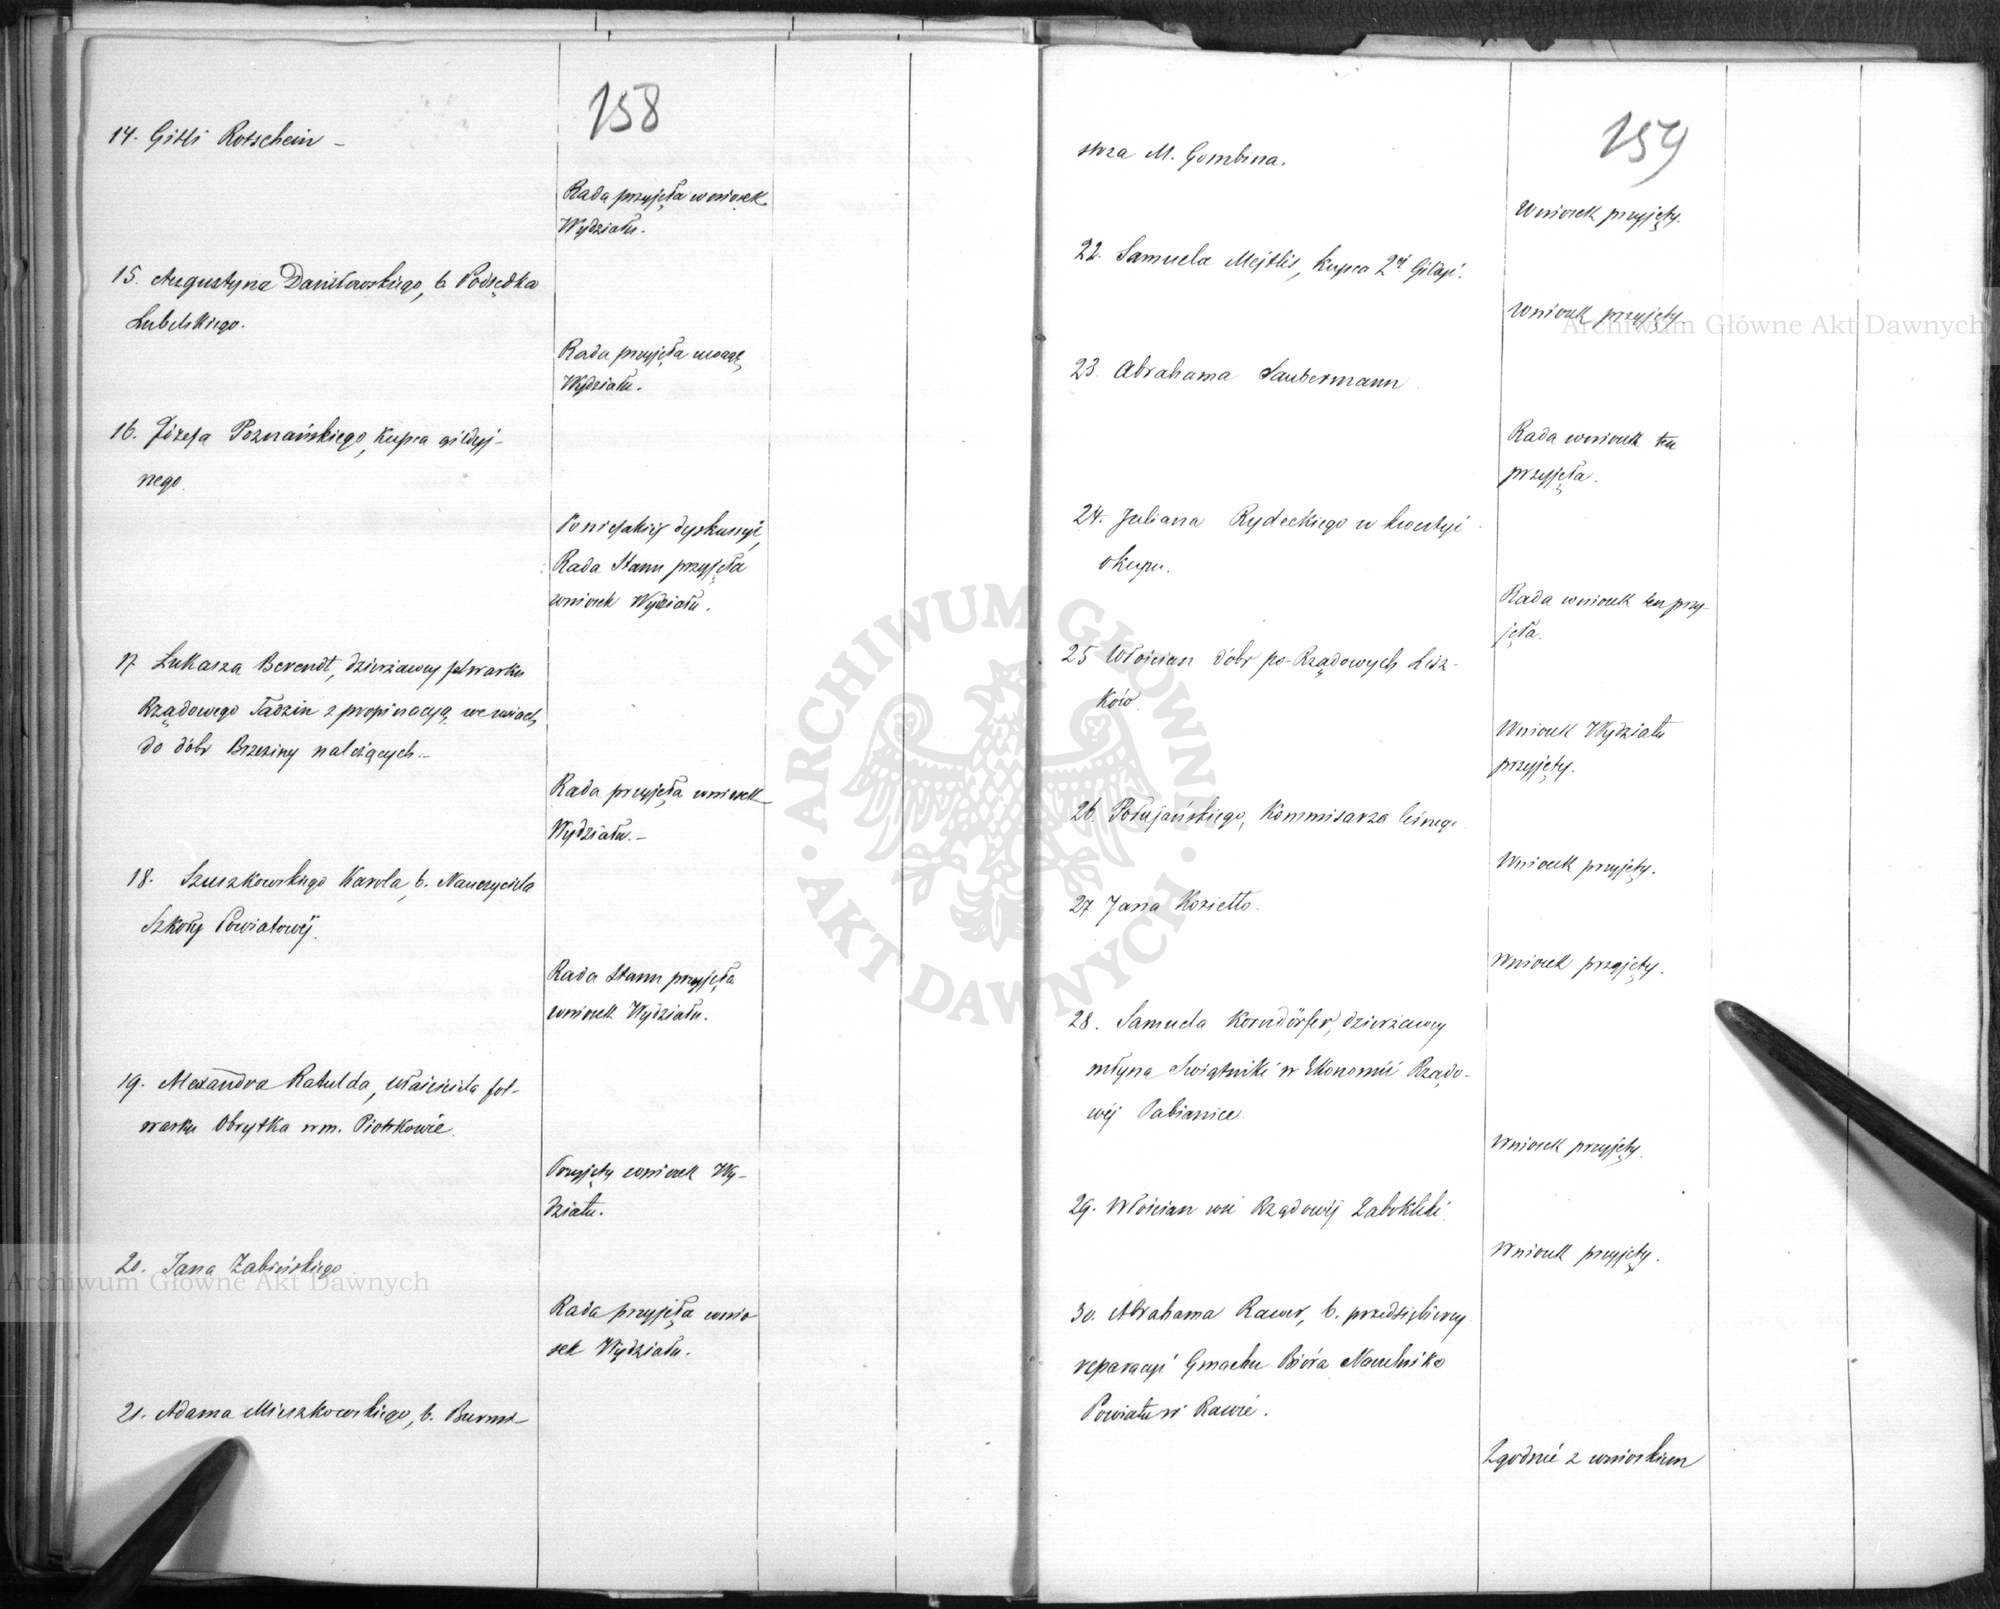 158
14. Gitli Rotschein –
Rada przyjęła wniosek
Wydziału.
15. Augustyna Daniłowskiego, b. Podsędka
Lubelskiego.
Rada przyjęła uwagę
Wydziału.
16. Józefa Poznańskiego, Kupca gildyj-
nego
Po niejakiéj dyskussyi,
Rada Stanu przyjęła
wniosek Wydziału.
17 Łukasza Berendt, dzierżawcy folwarku
Rządowego Tadzin z propinacyą we wsiach
do dóbr Brzeziny należących.–
Rada przyjęła wniosek
Wydziału.–
18. Szuszkowskiego Karola, b. Nauczyciela
Szkoły Powiatowéj.
Rada Stanu przyjęła
wniosek Wydziału.
19. Alexandra Ratulda, właściciela fol-
warku Obrytka w m. Piotrkowie.
Przyjęty wniosek Wy-
działu.
20. Jana Żabińskiego
Rada przyjęła wnio
sek Wydziału.
21. Adama Mieszkowskiego, b. Burmi-
159
strza M. Gombina.
Wniosek przyjęty.
22. Samuela Mejtlis, Kupca 2éj Gildyi.
Wniosek przyjęty.
23. Abrahama Saubermann
Rada wniosek ten
przyjęła.
24. Juliana Rydeckiego w kwestyi
okupu.
Rada wniosek ten przy-
jęła.
25 Włościan dóbr po-Rządowych Lisz-
ków
Wniosek Wydziału
przyjęty.
26. Połujańskiego, Kommisarza leśnego
Wniosek przyjęty.
27 Jana Koziełło.
Wniosek przyjęty.
28. Samuela Korndörfer, dzierżawcy
młyna Świątniki w Ekonomii Rządo-
wéj Pabianice.
Wniosek przyjęty.
29. Włościan wsi Rządowéj Zabokliki.
Wniosek przyjęty.
30. Abrahama Rawer, b. przedsiębiercy
reparacyi Gmachu Bióra Naczelnika
Powiatu w Rawie.
Zgodnie z wnioskiem
Archiwum Główne Akt Dawnych
Archiwum Główne Akt Dawnych
ARCHIWUM GŁÓWNE · AKT DAWNYCH ·